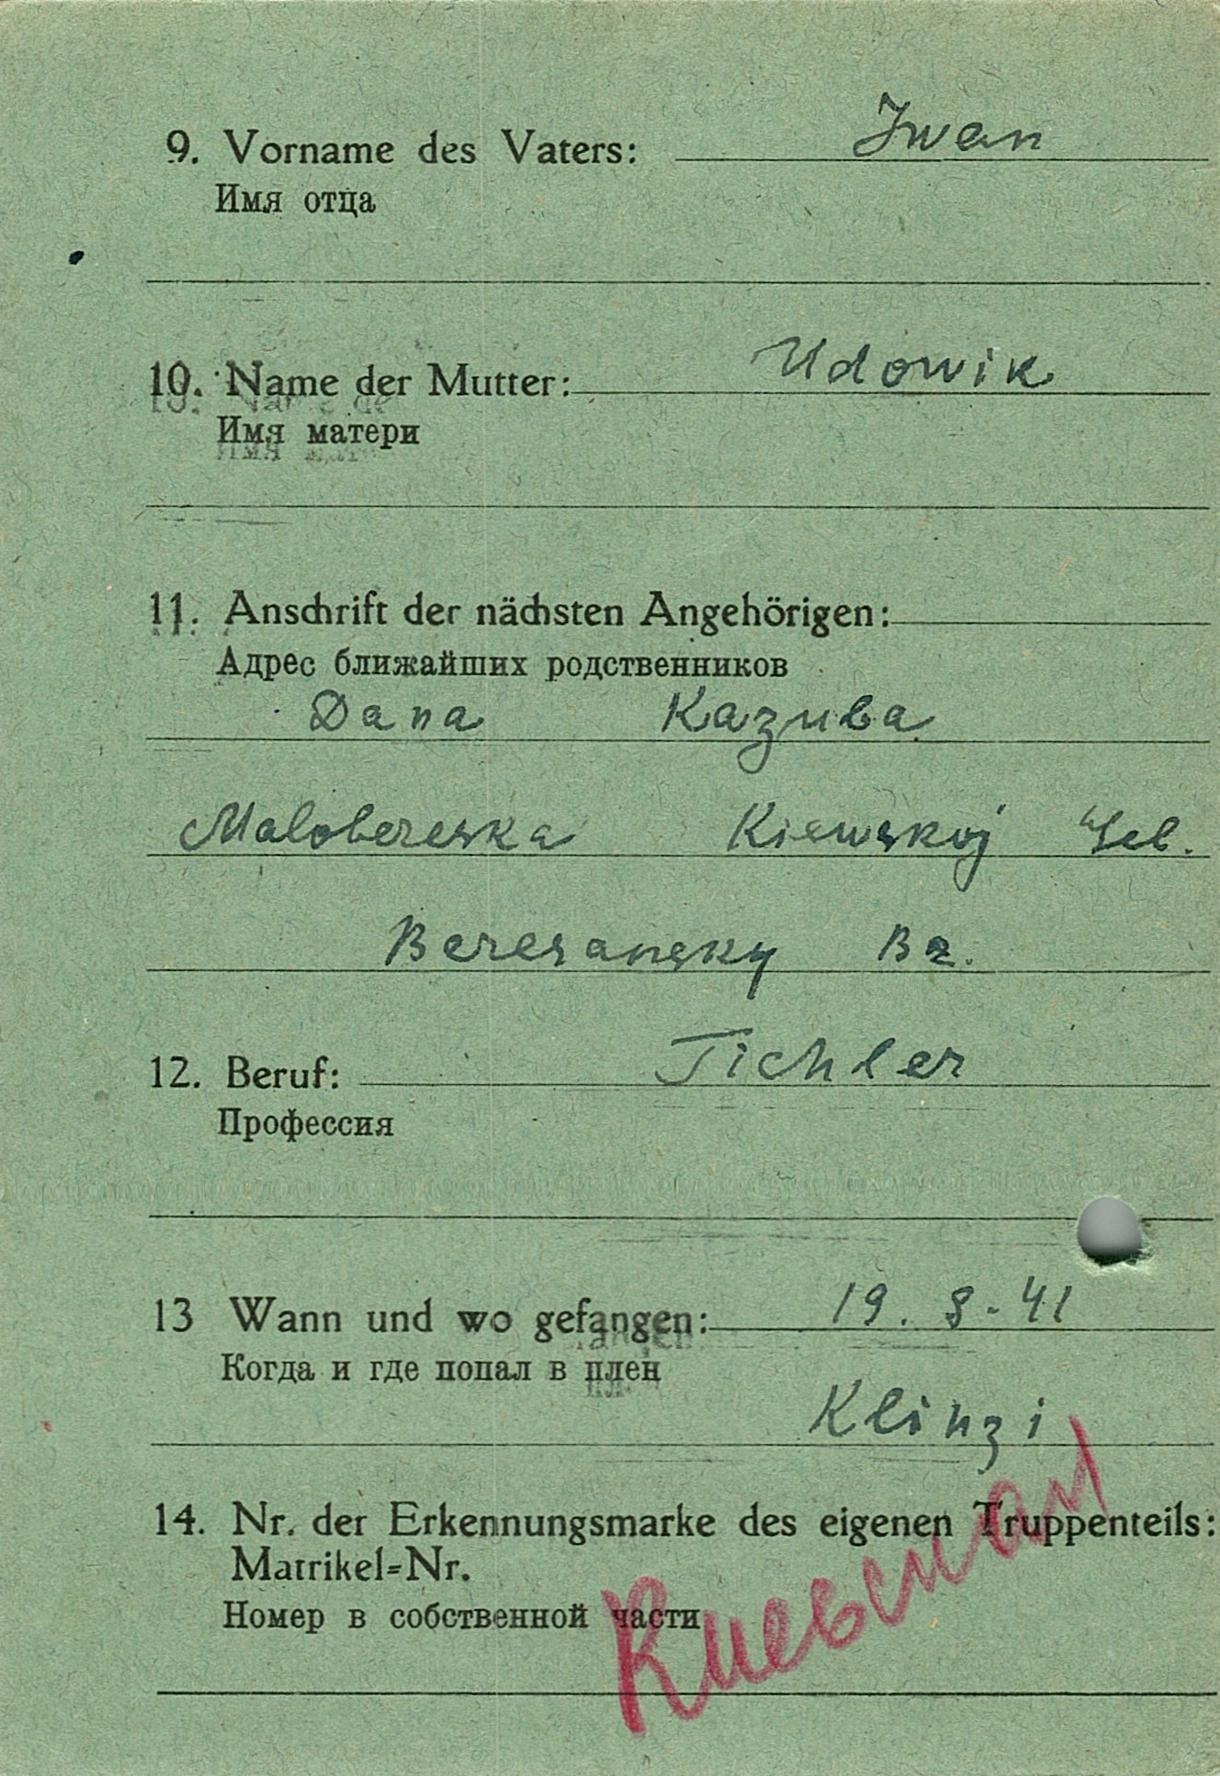 9. Vorname des Vaters: Iwan
Имя отца
10. Name der Mutter: Udowik
Имя матери
11. Anschrift der nächsten Angehörigen:
Адрес ближайших родственников
Dana Kazuba
Malobereska Kiewskoj Geb.
Beresansky
12. Beruf: Tichler
Профессия
13 Wann und wo gefangen: 19. 8. 41
Когда и где попал в плен
Klinzi
14. Nr. der Erkennungsmarke des eigenen Truppenteils:
Matrikel=Nr.
Номер в собственной части
Киевская